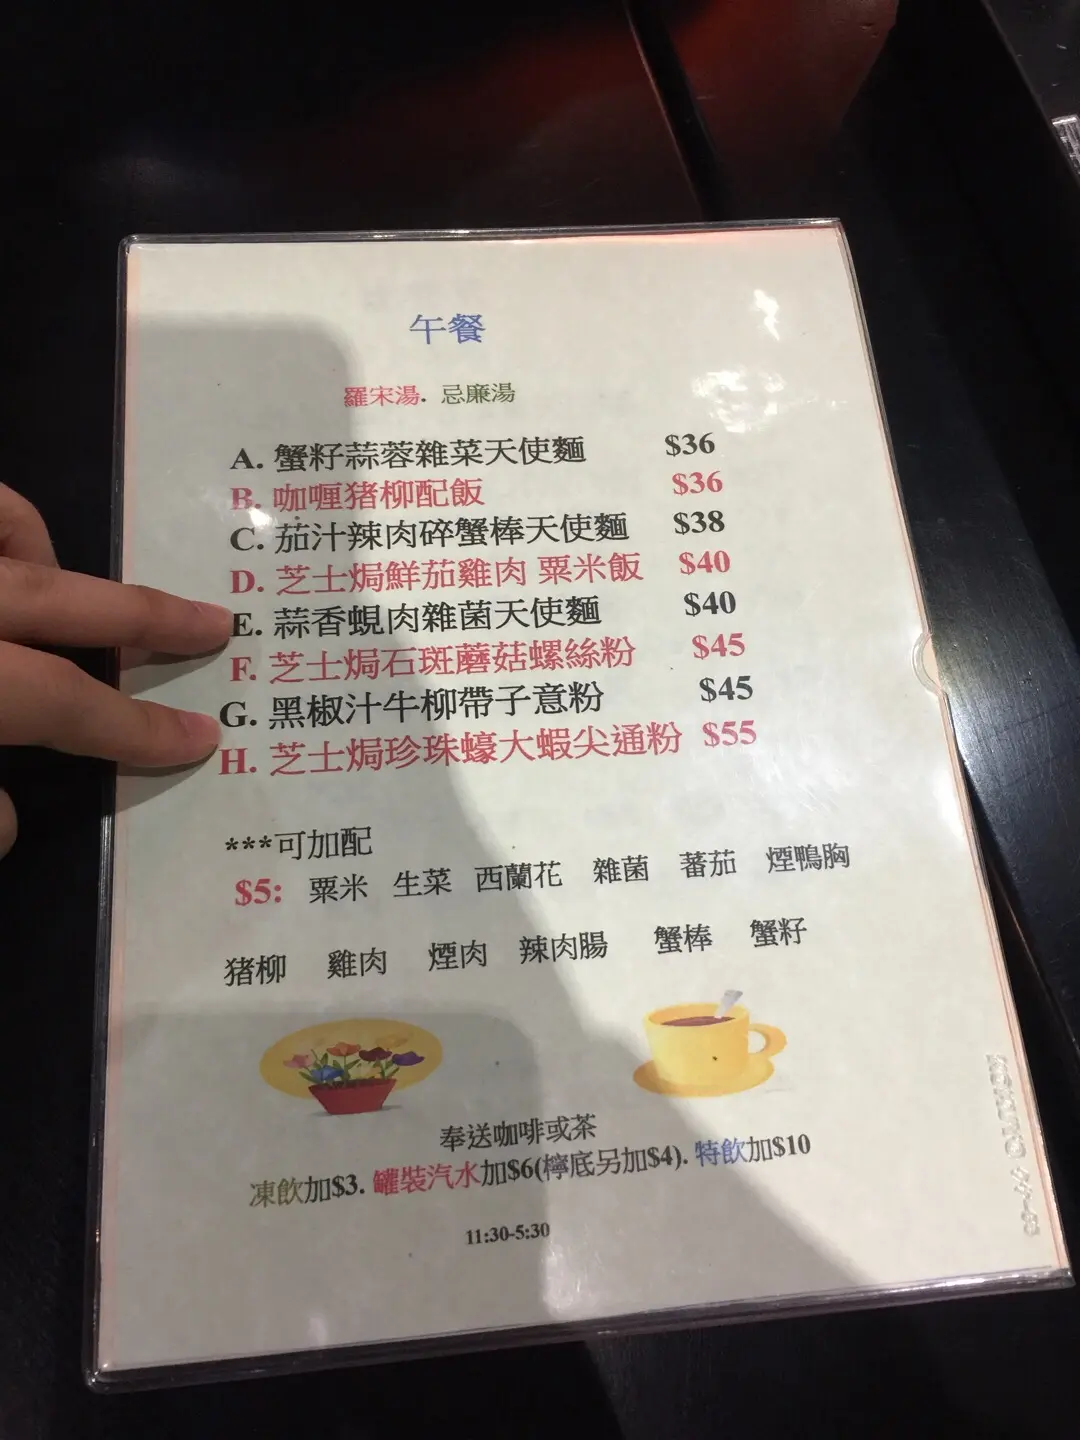 午餐
羅宋湯. 忌廉湯
A. 蟹籽蒜蓉雜菜天使麵 $36
B. 咖喱猪柳配飯 $36
C. 茄汁辣肉碎蟹棒天使麵 $38
D. 芝士焗鮮茄雞肉 粟米飯 $40
E. 蒜香蜆肉雜菌天使麵 $40
F. 芝士焗石斑蘑菇螺絲粉 $45
G. 黑椒汁牛柳帶子意粉 $45
H. 芝士焗珍珠蠔大蝦尖通粉 $55
***可加配
$5: 粟米 生菜 西蘭花 雜菌 蕃茄 煙鴨胸
猪柳 雞肉 煙肉 辣肉腸 蟹棒 蟹籽
奉送咖啡或茶
凍飲加$3. 罐裝汽水加$6(檸底另加$4). 特飲加$10
11:30-5:30